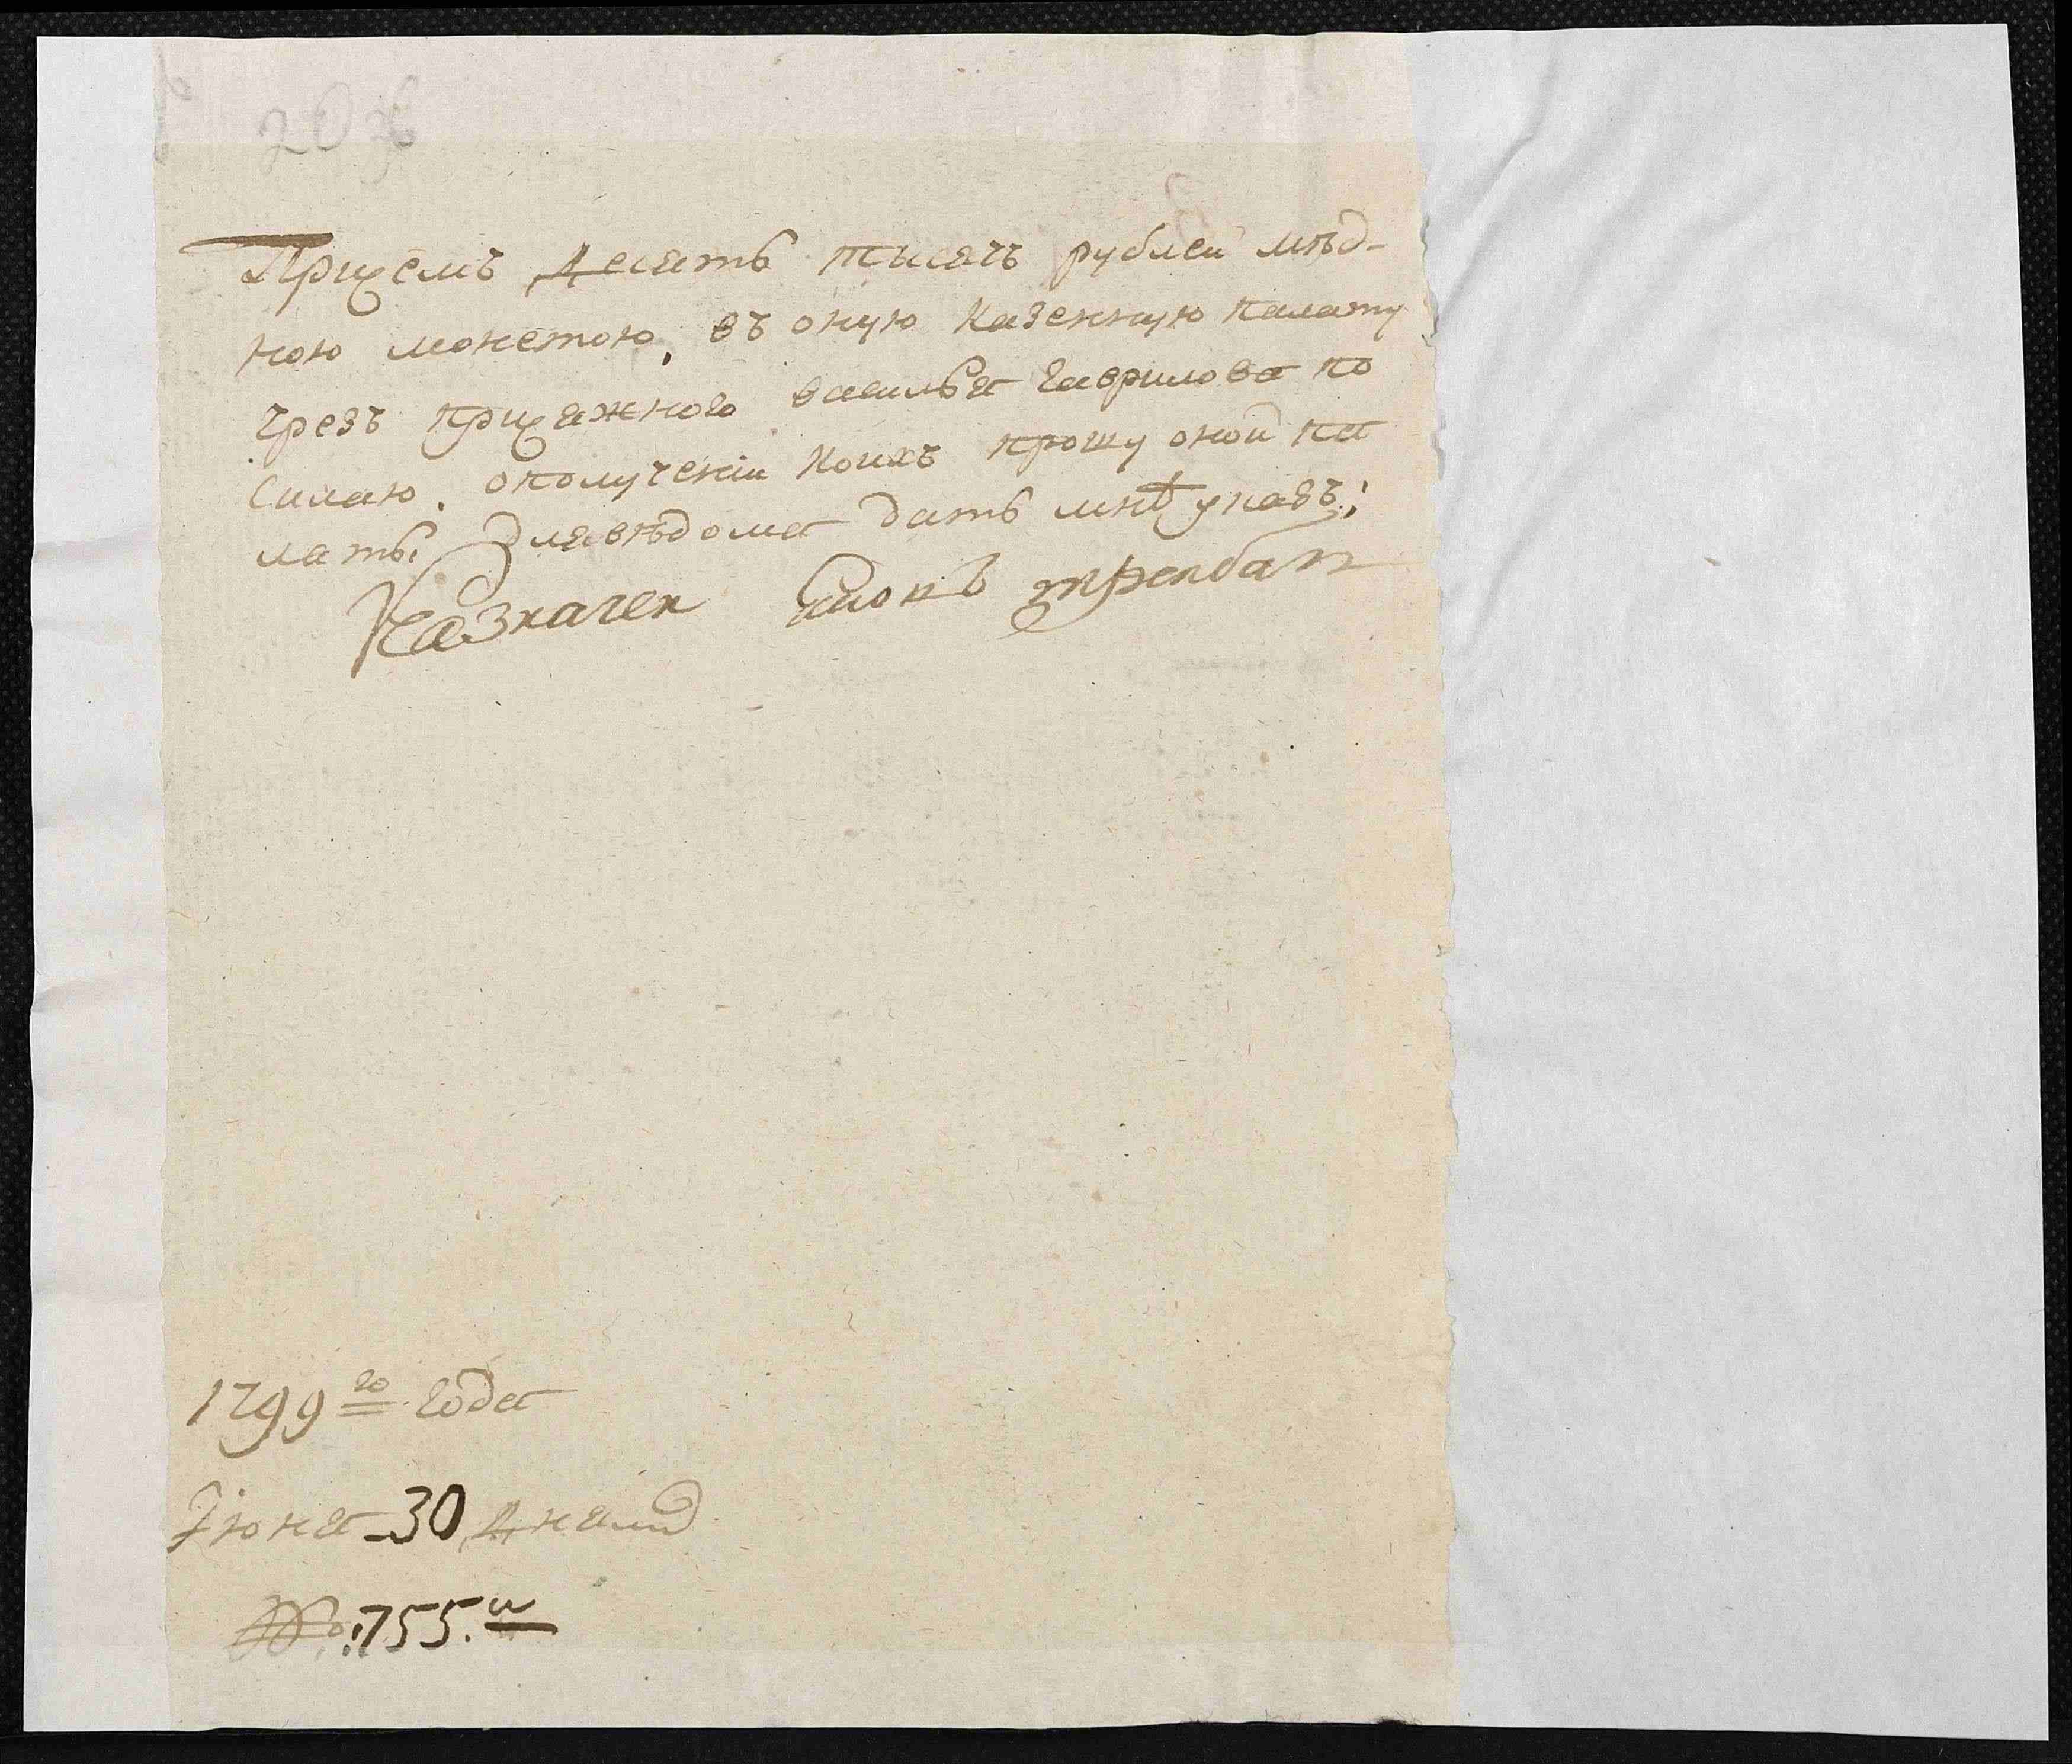 20
Присемъ десять тысячь рублей мѣд-
ною монетою, въ оную казенную палату
чрезъ присяжного василья гаврилова по
сылаю. ополученіи коихъ прошу оной па
латы длявѣдома дать мнѣ указъ;
Казначеи
1799го года
Iюня 30 дня
№: 755.и